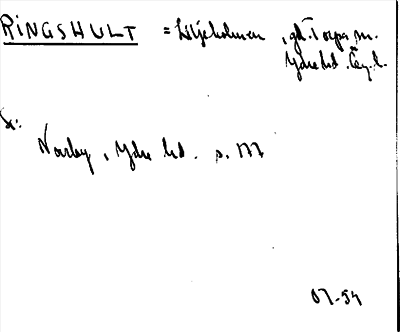 RINGSHULT = Liljeholmen, gd. Torpa sn.
Ydre hd. Ög. l.
Se:
Norrby, Ydre hd. s. 177